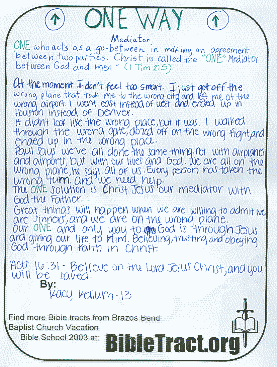 ONE WAY
Mediator
ONE who acts as a go-between in making an agreement
between two parties. Christ is called the "ONE" Mediator
between God and man. (1 Tim 2:5)
At the moment I don't feel too smart. I just got off the
wrong plane that took me to the wrong city and left me at the
wrong airport. I went east instead of west and ended up in
Houston instead of Denver.
It didn't look like the wrong plane, but it was. I walked
through the wrong gate, dozed off on the wrong flight, and
ended up in the wrong place.
Paul says we've all done the same thing. Not with airplanes
and airports, but with our lives and God. We are all on the
wrong plane, he says. All of us. Every person has taken the
wrong turn and we need help.
The ONE solution is Christ Jesus our mediator with
God the Father.
Great things will happen when we are willing to admit we
are sinners, and we are on the wrong plane.
Our ONE and only way to God is through Jesus
and giving our life to Him. Believing, trusting, and obeying
God through faith in Christ.
Acts 16:31 - Believe on the Lord Jesus Christ, and you
will be saved.
By:
-13
Find more Bible tracts from Brazos Bend
Baptist Church Vacation
Bible School 2003 at:
BibleTract.org